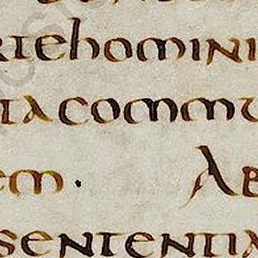 rte homini
ta commu
em. Ab
sententia